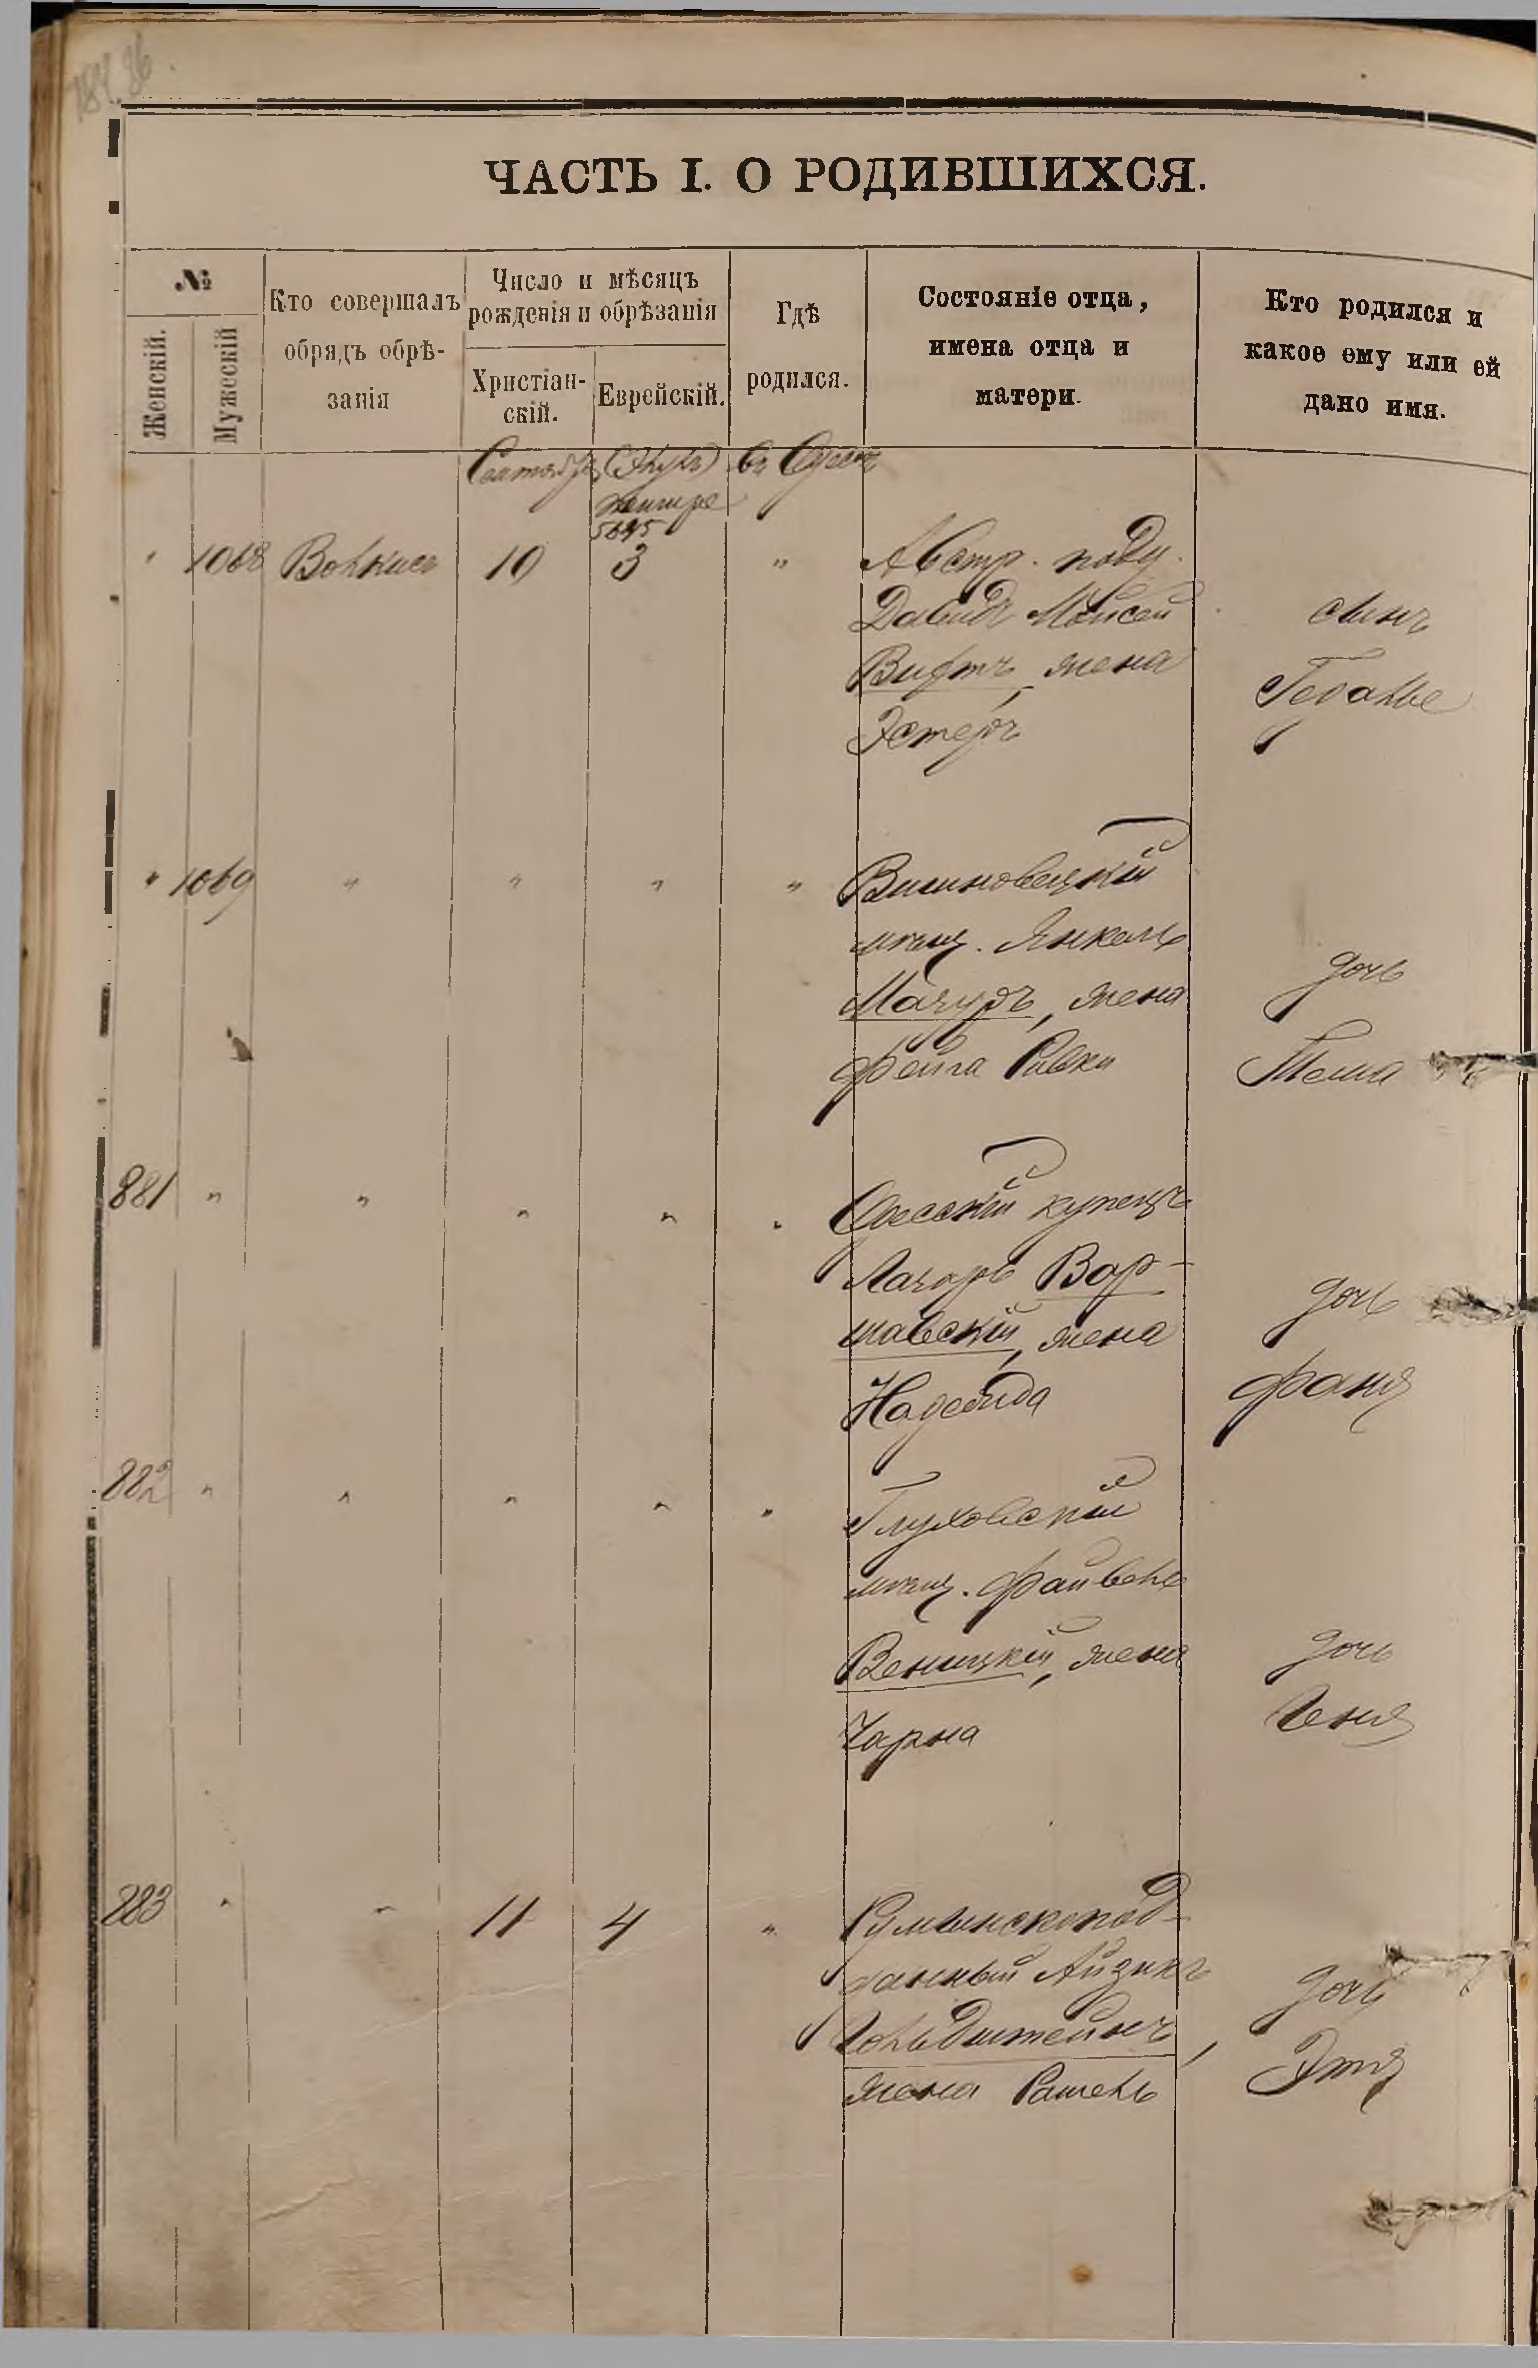 ЧАСТЬ I. О РОДИВШИХСЯ.
№
Женскій.
Мужескій
Кто совершалъ
обрядъ обрѣ-
занія
Число и мѣсяцъ
рожденія и обрѣзанія
Христіан-
скій.
Еврейскій.
Гдѣ
родился.
Состояніе отца,
имена отца и
матери.
Кто родился и
какое ему или ей
дано имя.
Сентября въ Одессѣ
" 1068 10 3 " Австр. подд.
Давидъ Мойсей
Вифтъ, жена
Эстеръ
сынъ
Гедалье
" 1069 " " " " Вишновецкій
мѣщ. Янкель
Мазуръ, жена
Фейга Ривка
дочь
881 " " " " " Одесскій купецъ
Лазарь Вар-
шавскій, жена
Надежда
дочь
Фаня
882 " " " " " Глуховскій
мѣщ. Файвель
Веницкій, жена
Чарна
дочь
Геня
883 " " 11 4 " Румынскопод-
данный Айзикъ
Гольдштейнъ,
жена Рашель
дочь
Этя